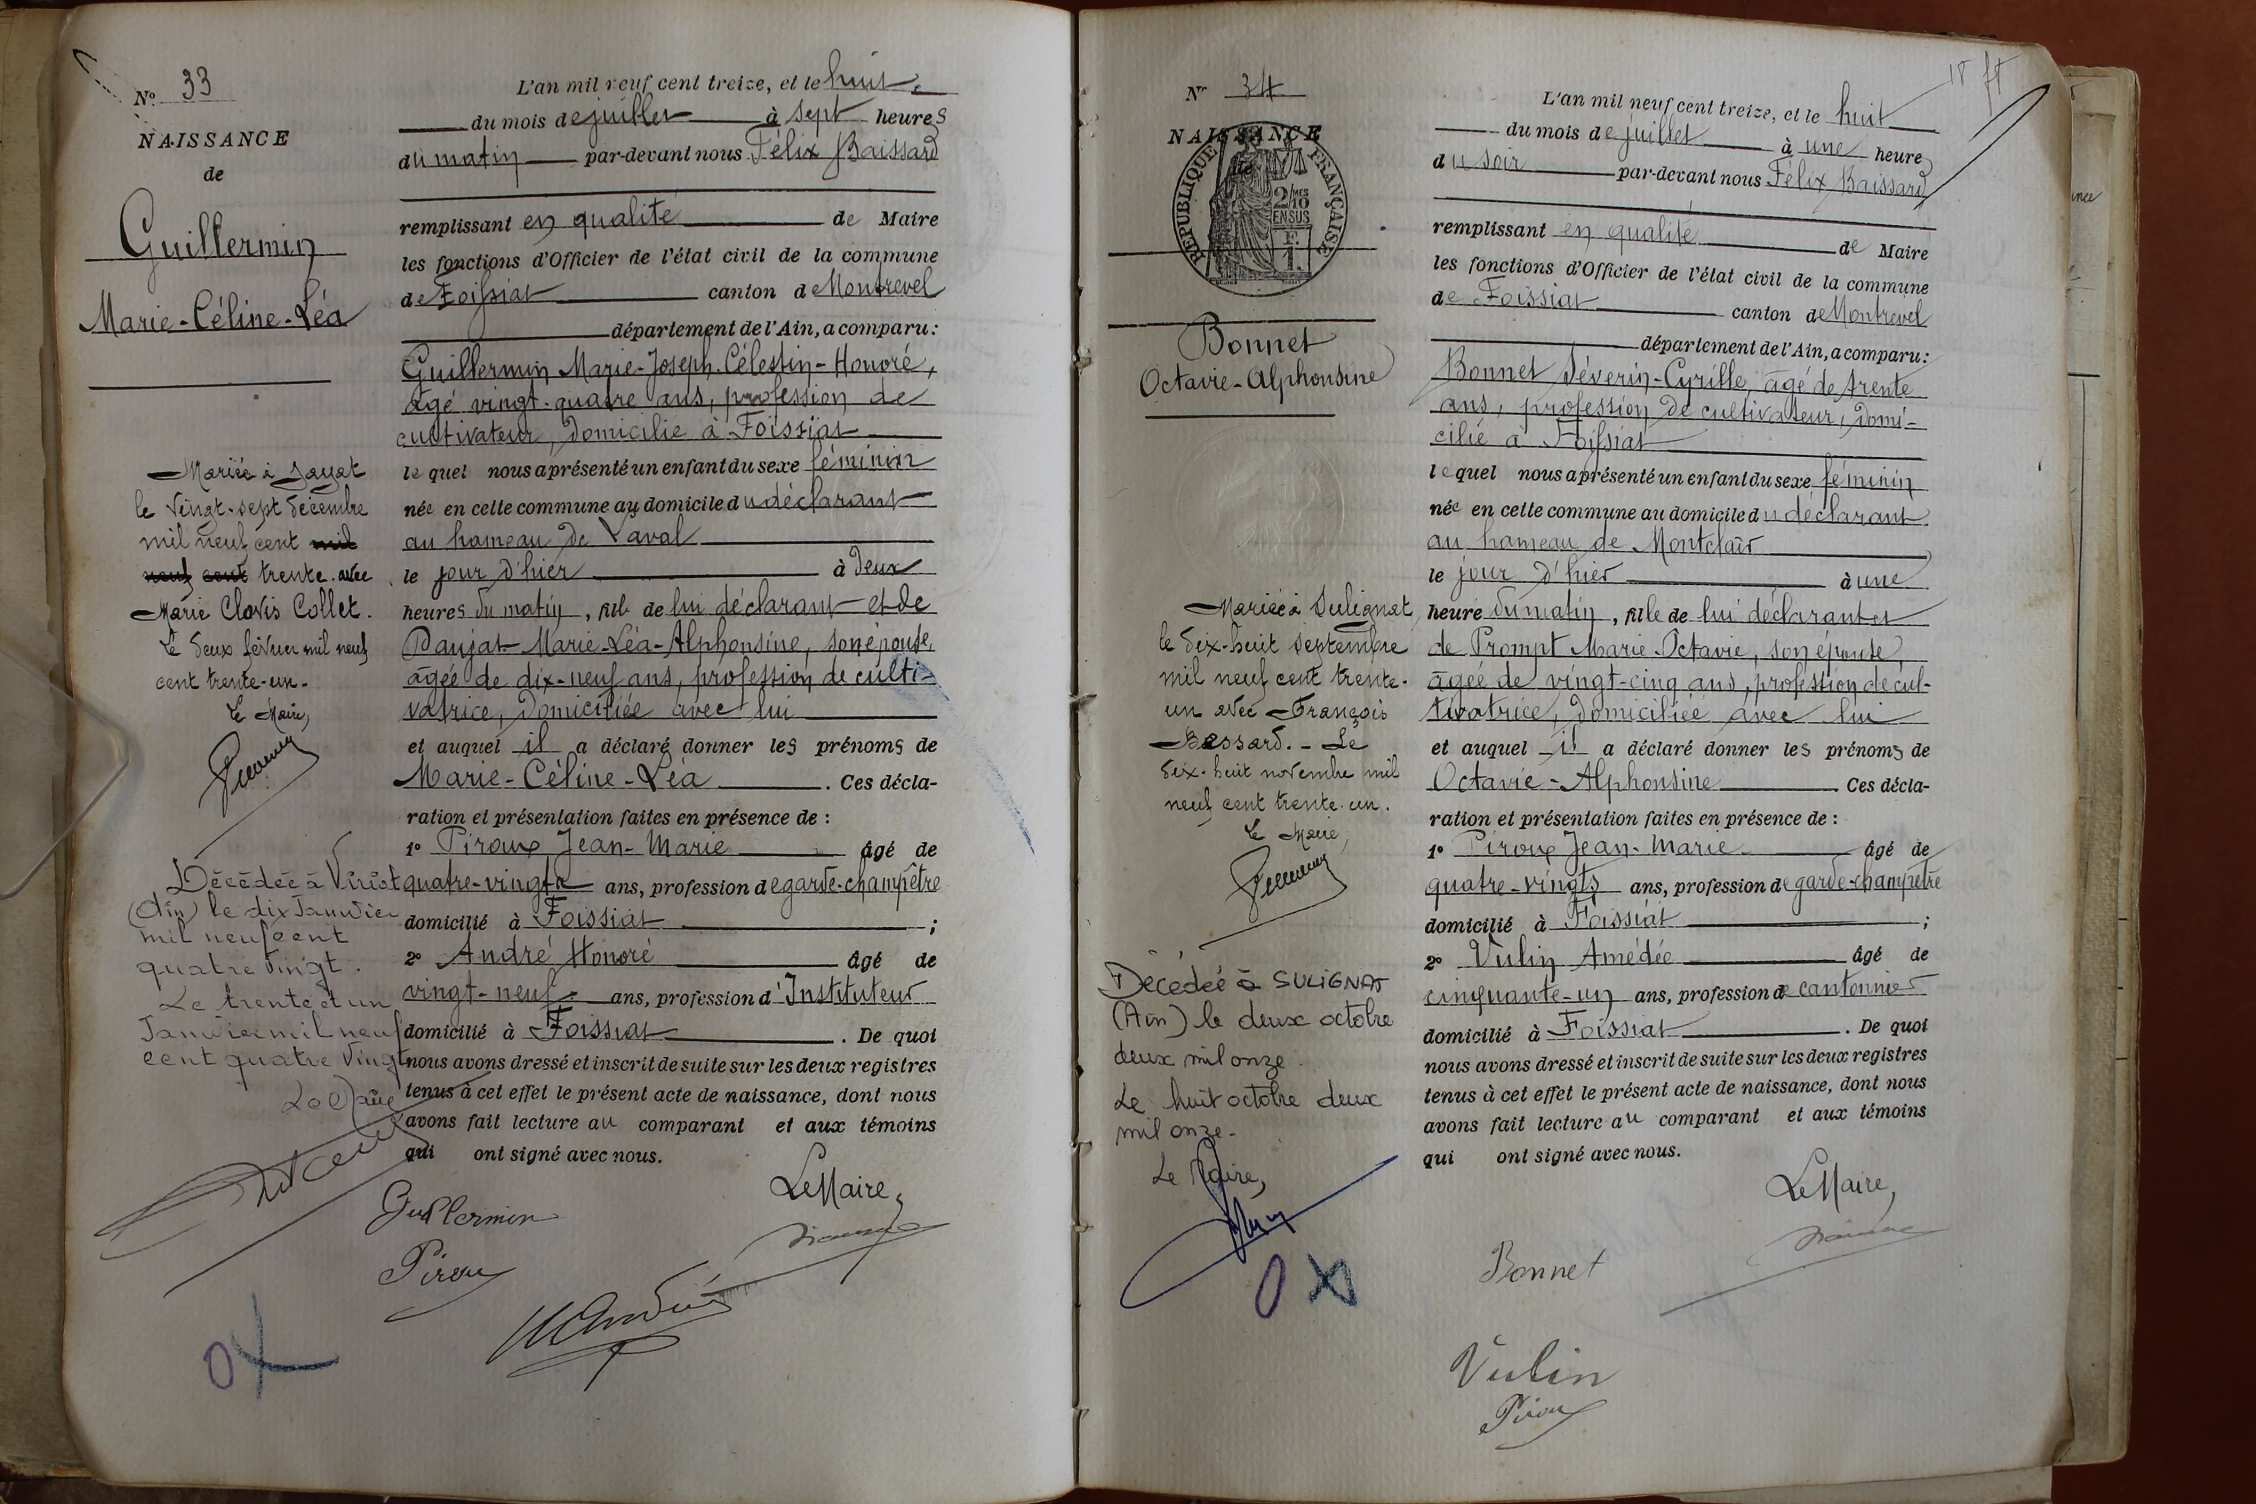 N° 33
NAISSANCE
de
Guillermin
Marie-Céline-Léa
Mariée à Jayat
le vingt-sept décembre
mil neuf cent mil
neuf cent trente avec
Marie Clovis Collet.
Le deux février mil neuf
cent trente-un.
Le Maire,
Décédée à Viriat
(Ain) le dix Janvier
mil neuf cent
quatre vingt.
Le trente et un
Janvier mil neuf
cent quatre vingt
Le Maire
L'an mil neuf cent treize, et le huit
du mois de juillet à sept heures
du matin par-devant nous Félix Baissard
remplissant en qualité de Maire
les fonctions d'Officier de l'état civil de la commune
de Foissiat canton de Montrevel
département de l'Ain, a comparu:
Guillermin Marie-Joseph-Célestin-Honoré,
âgé vingt-quatre ans, profession de
cultivateur, domicilié à Foissiat
lequel nous a présenté un enfant du sexe féminin
née en cette commune au domicile du déclarant
au hameau de Laval
le jour d'hier à deux
heures du matin, fille de lui déclarant et de
Paujat Marie-Léa-Alphonsine, son épouse,
âgée de dix-neuf ans, profession de culti-
vatrice, domiciliée avec lui
et auquel il a déclaré donner les prénoms de
Marie-Céline-Léa. Ces décla-
ration et présentation faites en présence de :
1° Piroux Jean-Marie âgé de
quatre-vingts ans, profession de garde-champêtre
domicilié à Foissiat ;
2° André Honoré âgé de
vingt-neuf ans, profession d'Instituteur
domicilié à Foissiat. De quoi
nous avons dressé et inscrit de suite sur les deux registres
tenus à cet effet le présent acte de naissance, dont nous
avons fait lecture au comparant et aux témoins
qui ont signé avec nous.
Le Maire,
Guillermin
Piroux
H André
N° 34
NAISSANCE
de
REPUBLIQUE FRANÇAISE
2/10 MES
EN SUS
F.
1.
Bonnet
Octavie-Alphonsine
Mariée à Sulignat
le dix-huit septembre
mil neuf cent trente-
un avec François
Bessard. - Le
dix-huit novembre mil
neuf cent trente-un.
Le Maire,
Décédée à SULIGNAT
(Ain) le deux octobre
deux mil onze.
Le huit octobre deux
mil onze-
Le Maire,
18 ft
L'an mil neuf cent treize, et le huit
du mois de juillet à une heure
du soir par-devant nous Félix Baissard
remplissant en qualité de Maire
les fonctions d'Officier de l'état civil de la commune
de Foissiat canton de Montrevel
département de l'Ain, a comparu:
Bonnet Séverin-Cyrille, âgé de trente
ans, profession de cultivateur, domi-
cilié à Foissiat
lequel nous a présenté un enfant du sexe féminin
née en cette commune au domicile du déclarant
au hameau de Montclair
le jour d'hier à une
heure du matin, fille de lui déclarant et
de Prompt Marie-Octavie, son épouse
âgée de vingt-cinq ans, profession de cul-
tivatrice, domiciliée avec lui
et auquel il a déclaré donner les prénoms de
Octavie-Alphonsine. Ces décla-
ration et présentation faites en présence de :
1° Piroux Jean-Marie âgé de
quatre-vingts ans, profession de garde-champêtre
domicilié à Foissiat ;
2° Vulin Amédée âgé de
cinquante-un ans, profession de cantonnier
domicilié à Foissiat. De quoi
nous avons dressé et inscrit de suite sur les deux registres
tenus à cet effet le présent acte de naissance, dont nous
avons fait lecture au comparant et aux témoins
qui ont signé avec nous.
Le Maire,
Bonnet
Vulin
Piroux